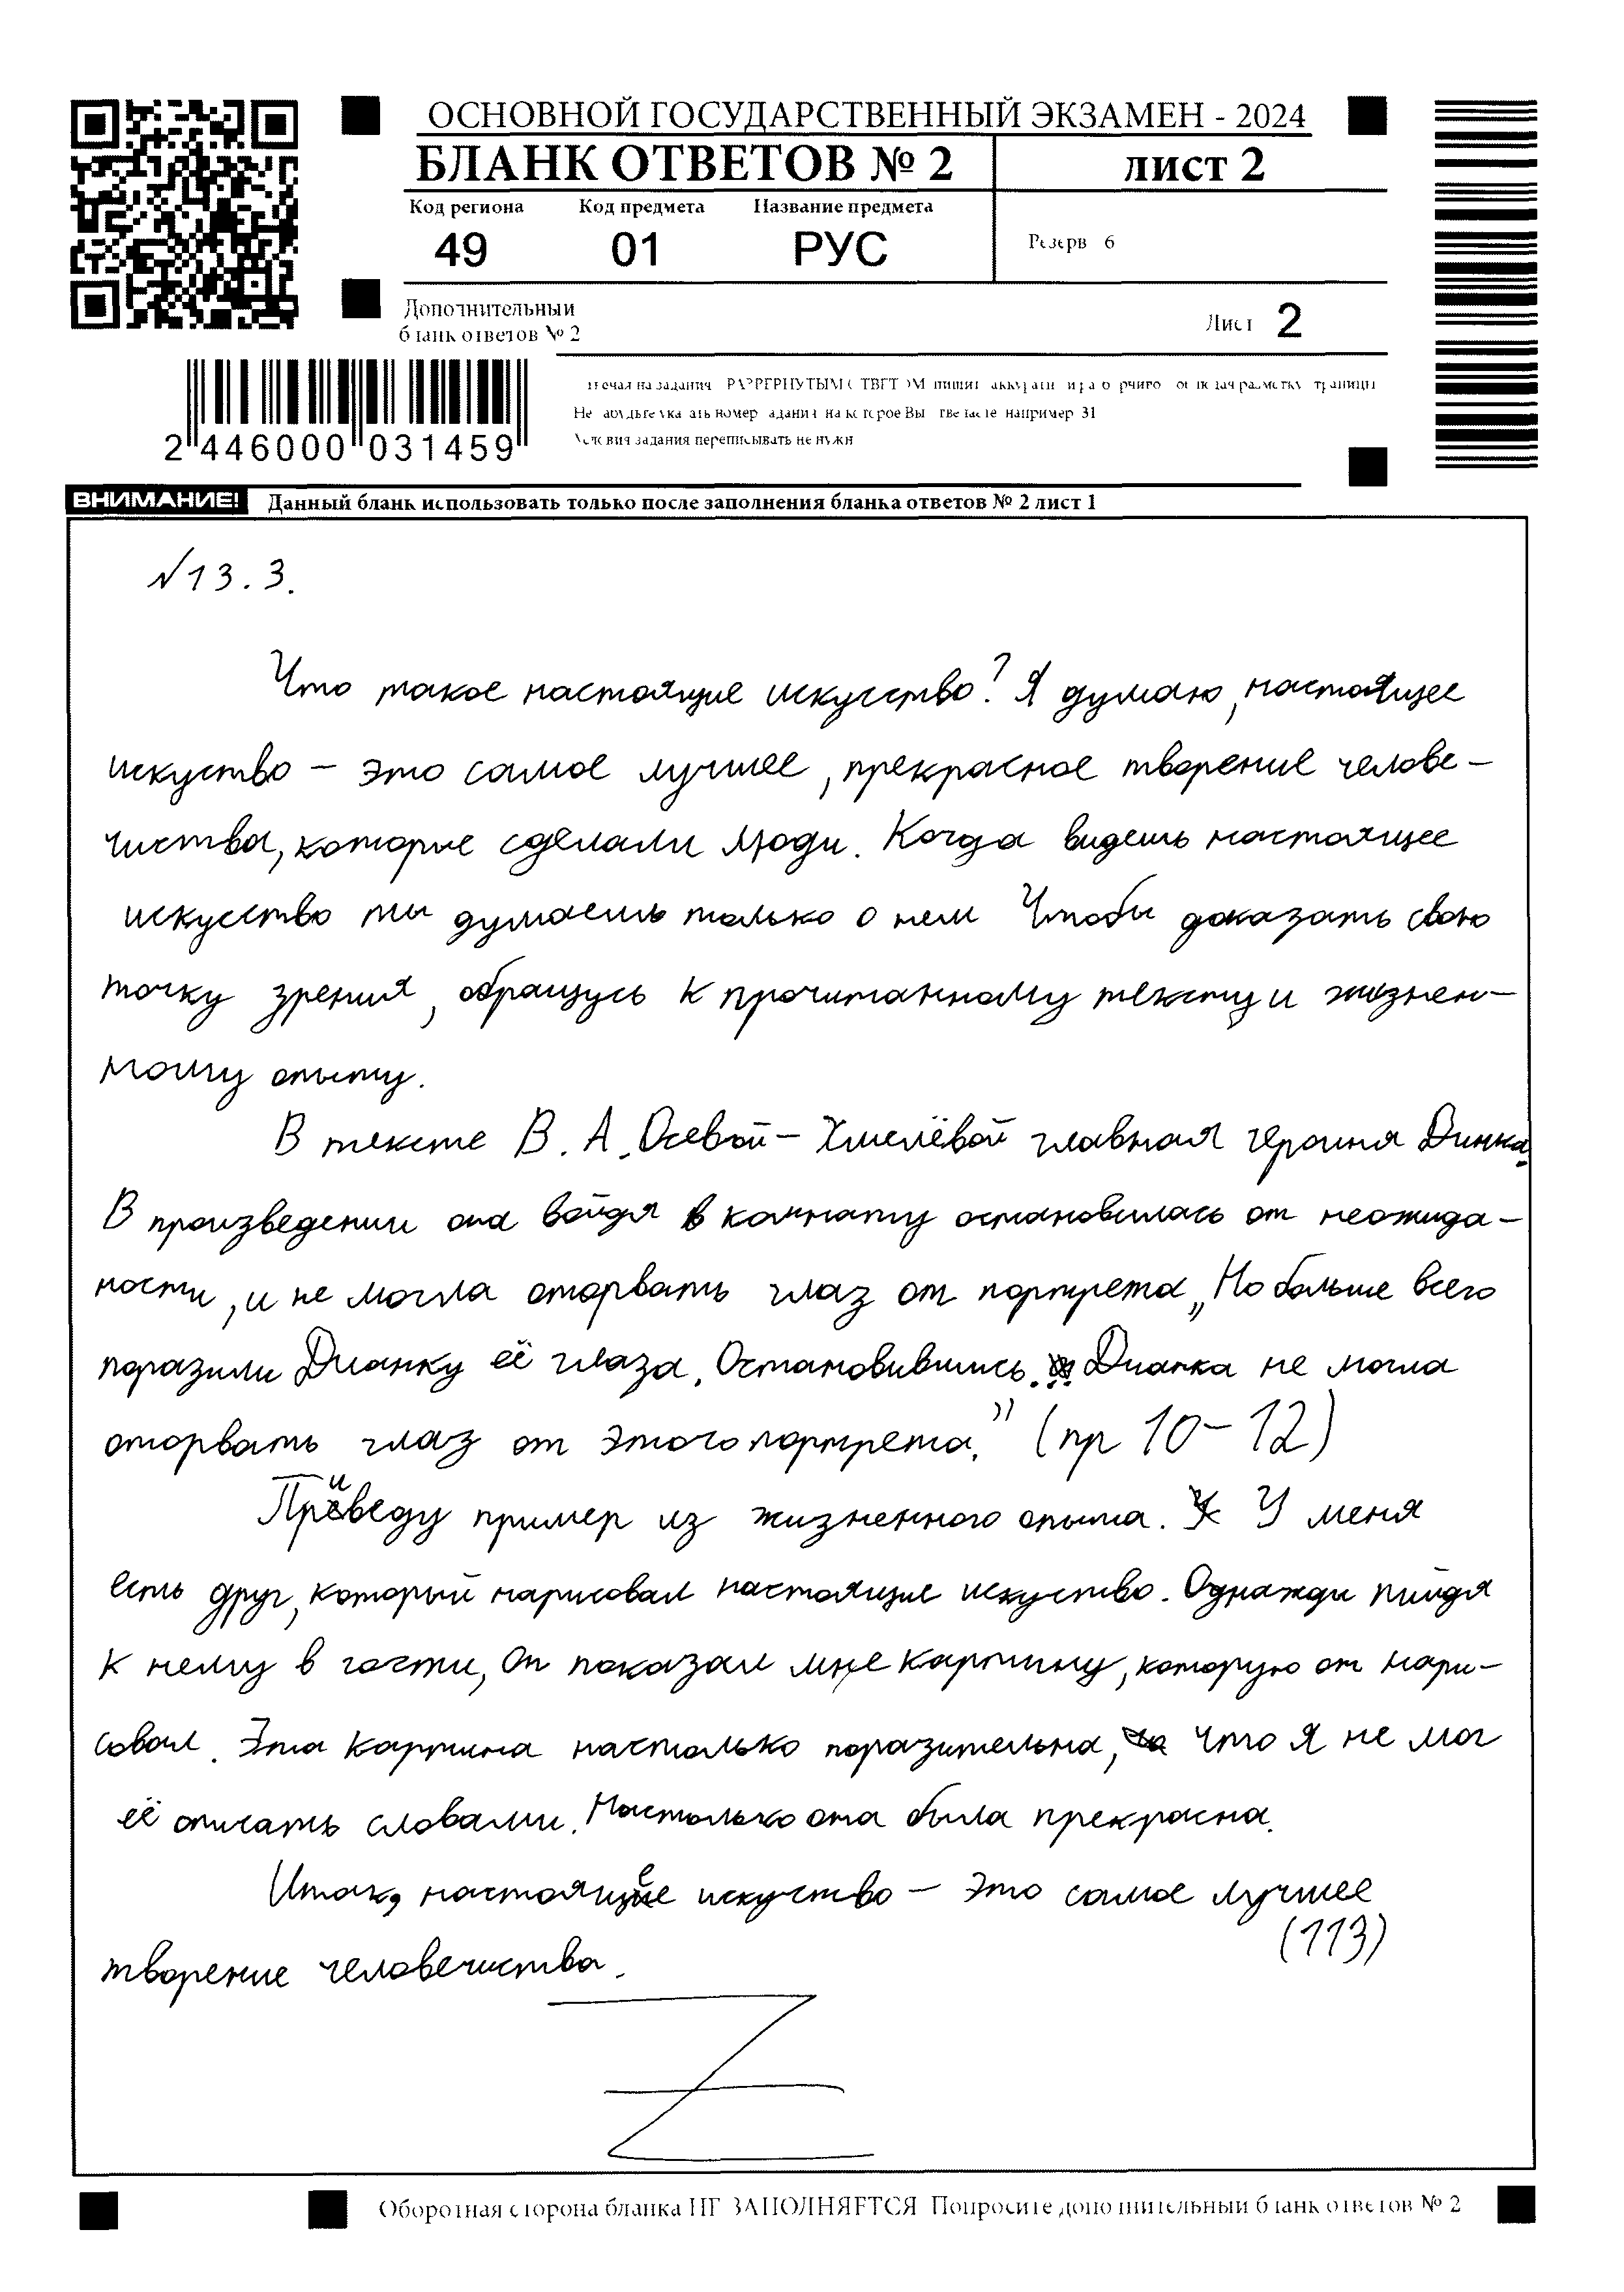 ОСНОВНОЙ ГОСУДАРСТВЕННЫЙ ЭКЗАМЕН - 2024
БЛАНК ОТВЕТОВ № 2 лист 2
Код региона Код предмета Название предмета
49 01 РУС Резерв 6
Дополнительный
бланк ответов № 2 Лист 2
2 446000 031459
Условия задания переписывать не нужн
ВНИМАНИЕ! Данный бланк использовать только после заполнения бланка ответов № 2 лист 1
№13.3.
Что такое настоящие искусство? Я думаю, настоящее
искуство – это самое лучшее, прекрасное творение челове-
чиства, которые сделали люди. Когда видешь настоящее
искусство ты думаешь только о нем Чтобы доказать свою
точку зрения, обращусь к прочитанному тексту и жизнен-
ному опыту.
В тексте В.А.Осевой-Хмелёвой главная героиня Динка.
В произведении она войдя в комнату остановилась от неожида-
ности, и не могла оторвать глаз от портрета „Но больше всего
поразили Дианку её глаза. Остановившись Дианка не могла
оторвать глаз от этого портрета.” (пр 10-12)
Приведу пример из жизненного опыта. У меня
есть друг, который нарисовал настоящие искуство. Однажды пийдя
к нему в гости, Он показал мне картину, которую он нари-
совал. Эта картина настолько поразительна, что я не мог
её описать словами. Настолько она была прекрасна.
Итак, настоящее искуство – это самое лучшее
(113)
творение человечиства.
Оборотная сторона бланка НЕ ЗАПОЛНЯЕТСЯ Попросите дополнительный бланк ответов № 2